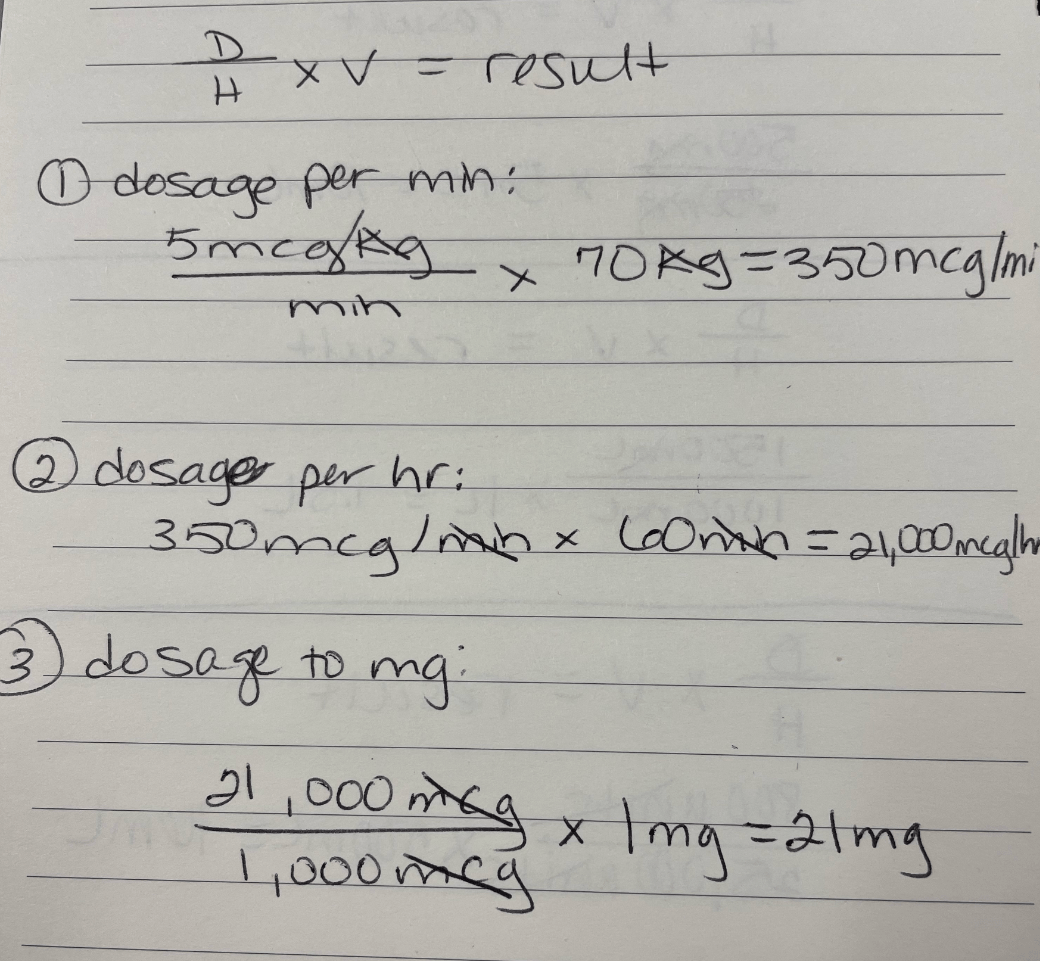 D
H x V = result
① dosage per min:
5mcg/kg
min x 70kg=350mcg/mi
② dosage per hr:
350mcg/min x 60min=21,000mcg/hr
③ dosage to mg:
21,000mcg
1,000mcg x 1mg=21mg